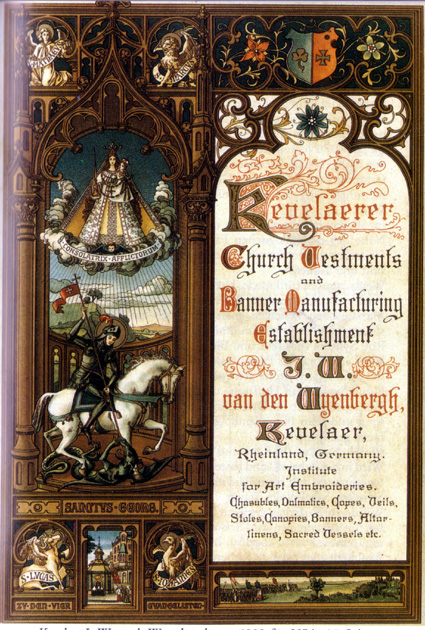 CONSOLATRIX · AFFLICTORUM
SANCTVS · GEORG.
S · LVCAS
ZV · DEN · VIER
Kevelaerer
Church Vestments
and
Banner Manufacturing
Establishment
J. W.
van den Wyenbergh,
Kevelaer,
Rheinland, Germany.
Institute
for Art Embroideries.
Chasubles, Dalmatics, Copes, Veils,
Stoles, Canopies, Banners, Altar-
linens, Sacred Vessels etc.